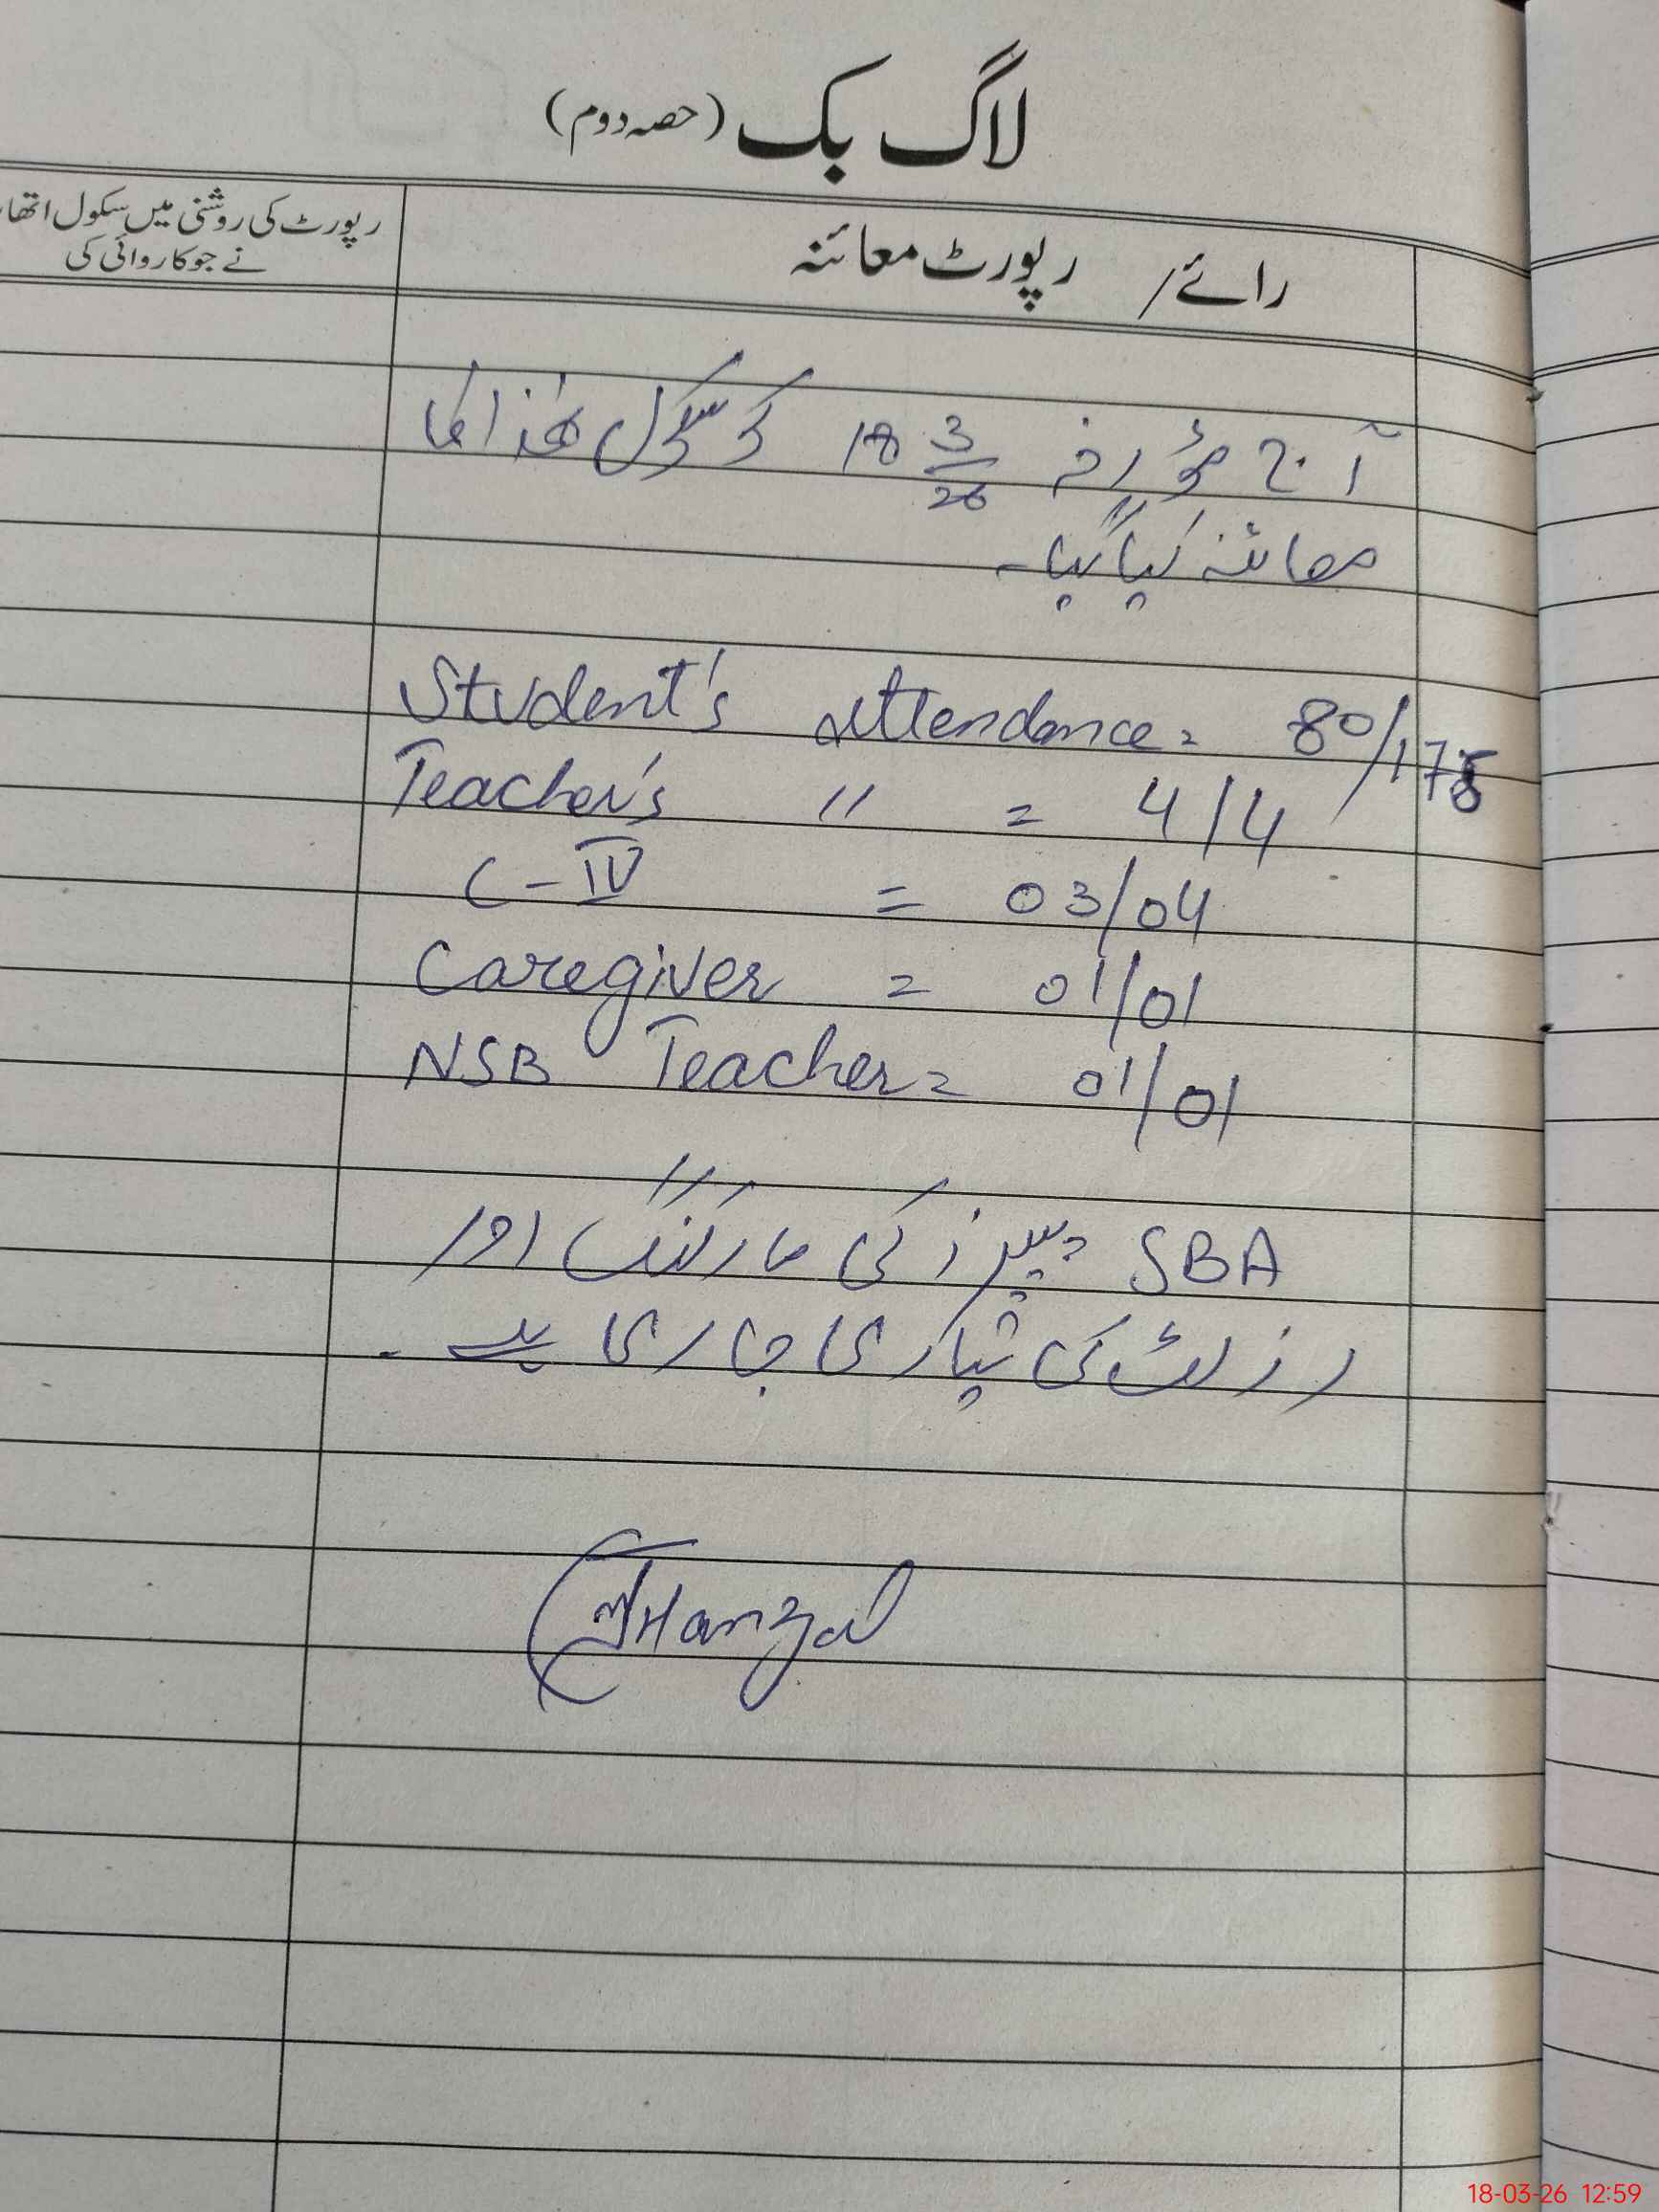 لاگ بک (حصہ دوم)
رائے / رپورٹ معائنہ
رپورٹ کی روشنی میں سکول اتھا
نے جو کاروائی کی
آج مؤرخہ 18 3/26 کو سکول ھٰذا کا
معائنہ کیا گیا۔
Student's attendance = 80/178
Teacher's " = 4/4
C-IV = 03/04
Caregiver = 01/01
NSB Teacher = 01/01
SBA پیپرز کی مارکنگ اور
رزلٹ کی تیاری جاری ہے۔
18-03-26 12:59